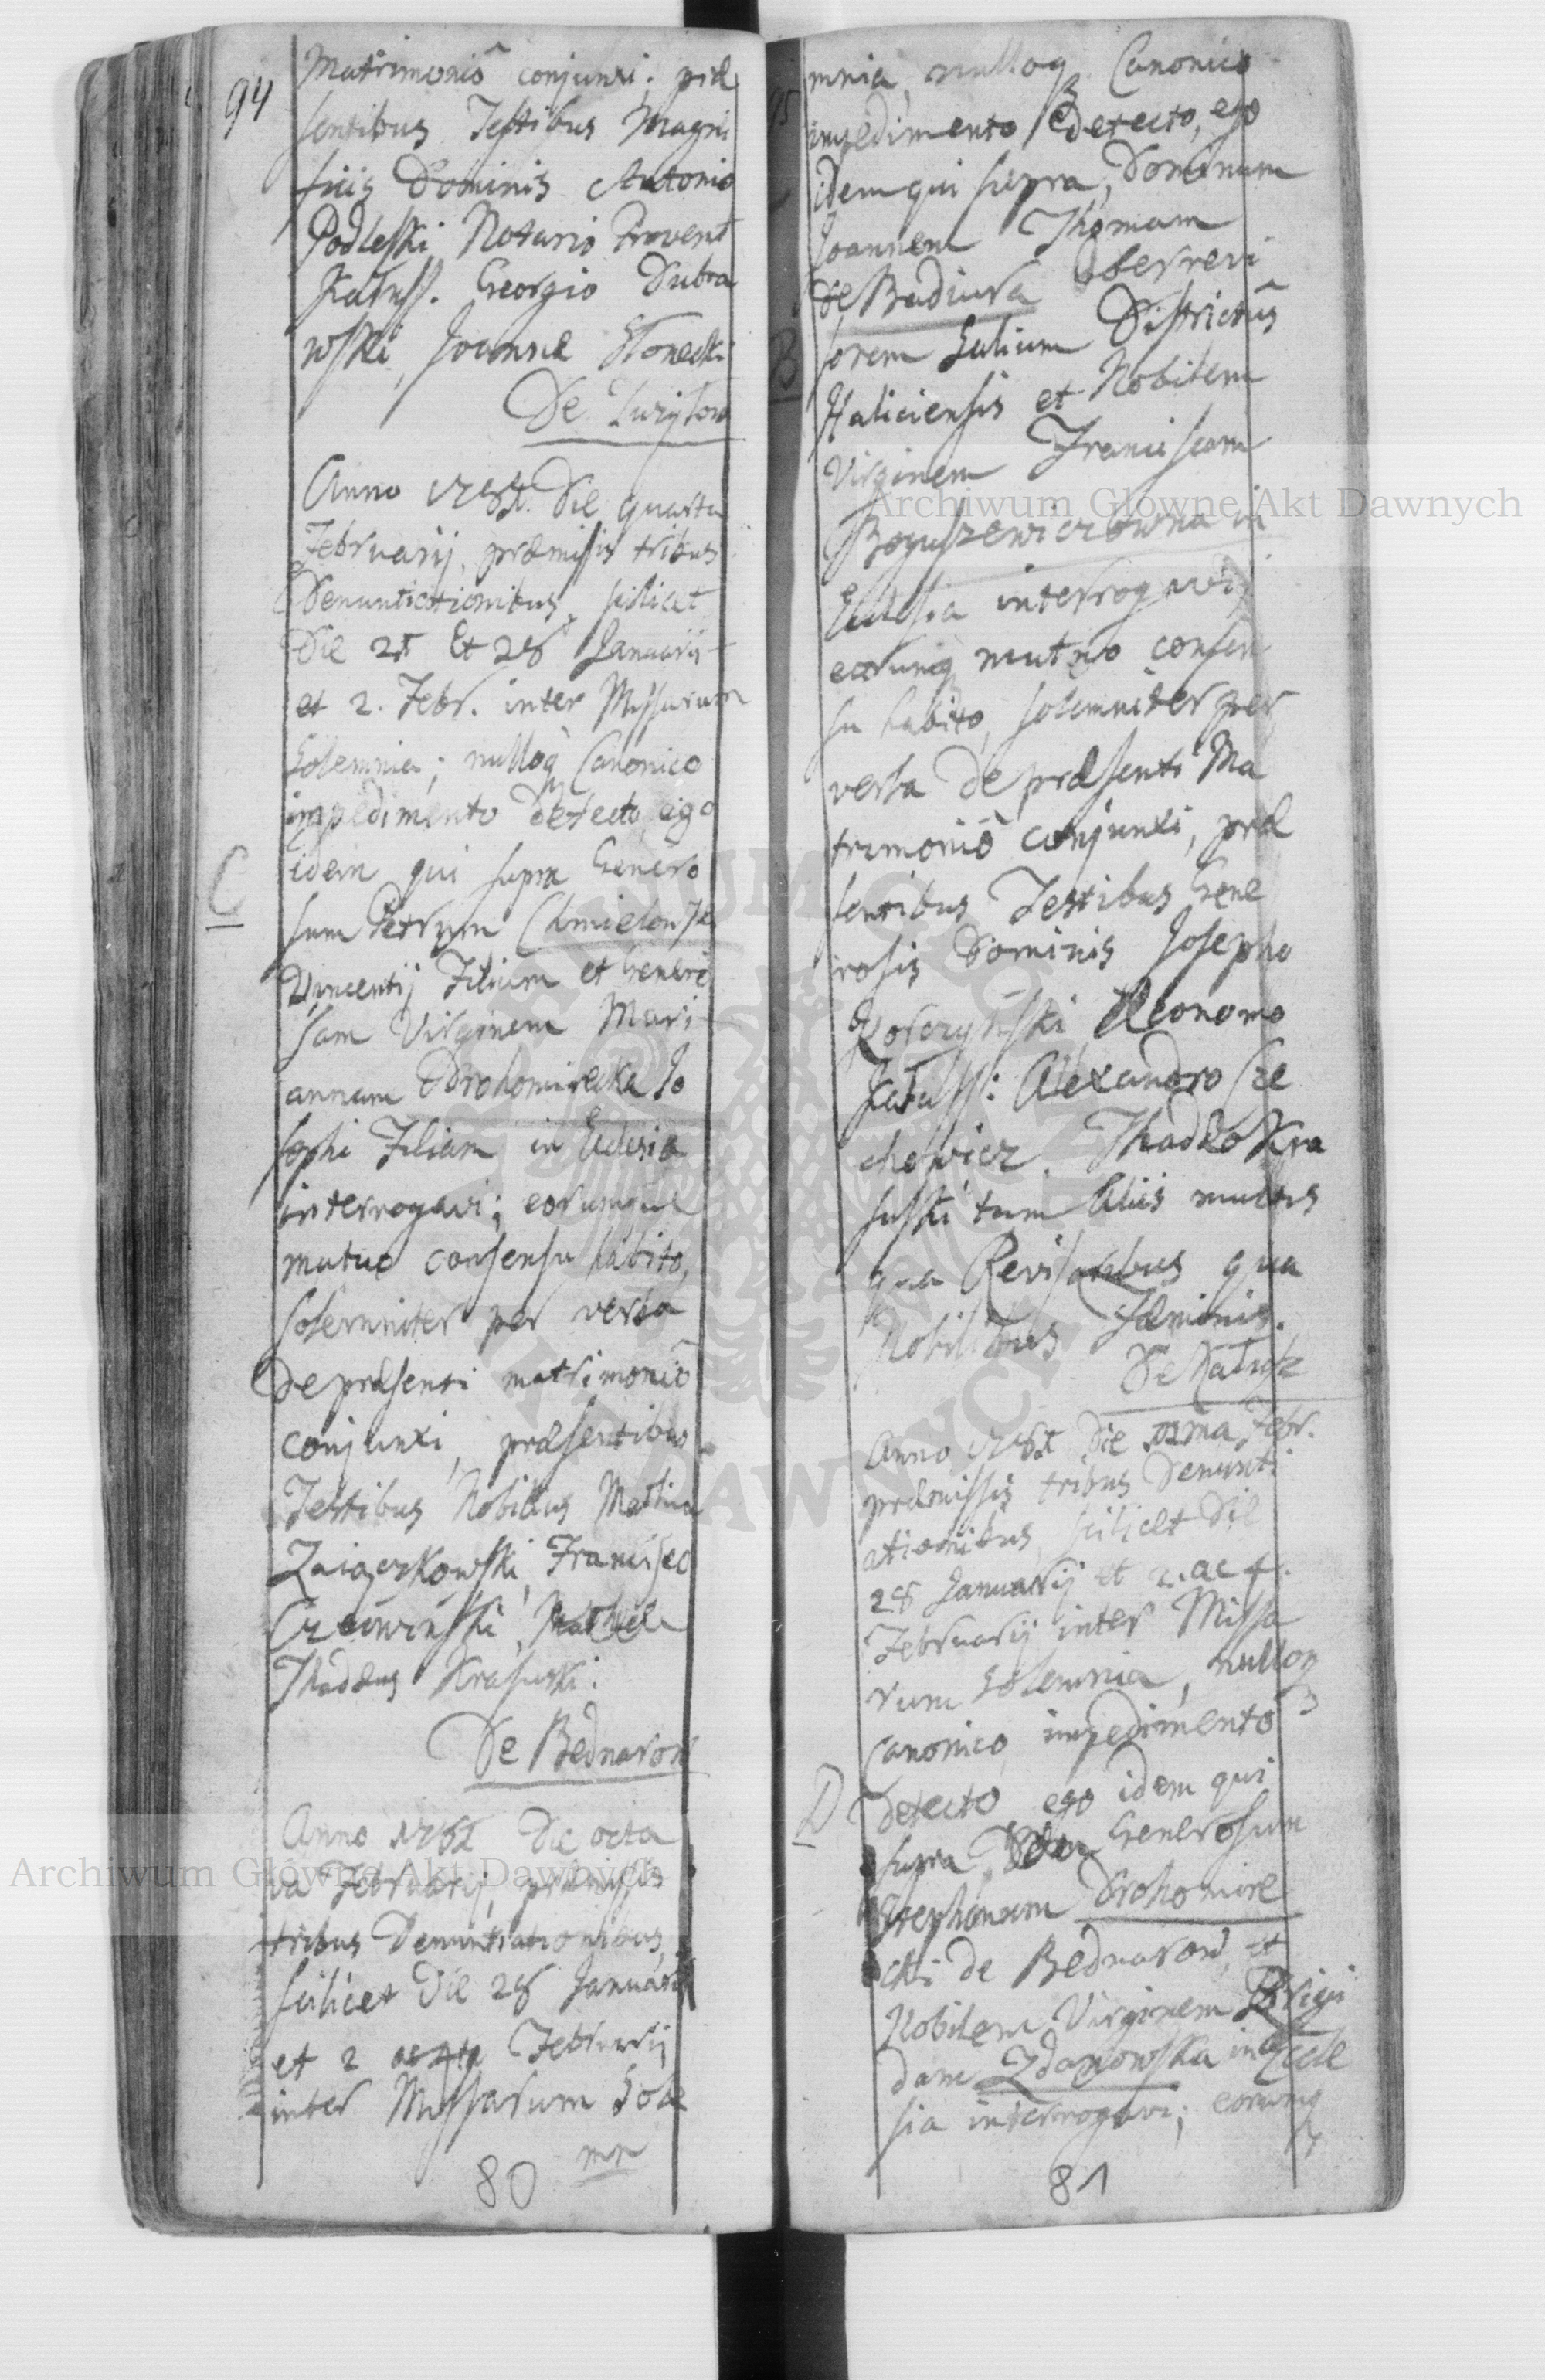 94
Matrimoniô conjunxi; præ
sentibus Testibus Magni
ficis Dominis Antonio
Podleski Notario Provent
Katuss. Georgio Dubra
wski, Joanne
De
Anno Die quarta
Februarij, præmissis tribus
Denuntiationibus, scilicet
Die 21 Et 28 Januarij
et 2. Febr. inter Missarum
Solemnia; nulloq Canonico
impedimento detecto, ego
C
idem qui supra Genero
sum Petrum Chmielowski
Vincentij Filium et Genero
sam Virginem Mari
annam Drohomirecka Jo
sephi Filiam in Eclesia
interrogavi; eorumque
mutuo consensu habito,
solemniter per verba
de præsenti matrimoniô
conjunxi, præsentibus
Testibus Nobilius
Zaiączkowski, Francisco
Thaddeus Krasuski.
De Bednarow
Anno Die octa
va Februarij, præmissis
tribus Denuntiationibus,
scilicet Die 28 Januarij
et 2 Februarij
inter Missarum Sole
mn
80
mnia, nulloq Canonico
impedimento detecto, ego
idem qui supra, Dominum
Joannem Thomam
de Badiura
B
sorem Salium Districtus
Haliciensis et Nobilem
Virginem Franciscam
Boguszewiczowna in
Eclesia interrogavi;
eorumq mutuo consen
su habito, solemniter per
verba de præsenti Ma
trimoniô conjunxi, præ
sentibus Testibus Gene
rosis Dominis Josepho
Œconomo
Katuss: Alexandro Cze
chowicz, Thaddeo Kra
suski tum Aliis multis
qua Revisoribus qua
Nobilibus
De Katusz
Anno Die Febr.
præmissis tribus Denunti
ationibus, scilicet Die
28 Januarij et 2. ac 4.
Februarij inter Missa
rum Solemnia, nulloq
Canonico impedimento
D
detecto ego idem qui
supra Generosum
Stephanum Drohomire
cki de Bednarow, et
Nobilem Virginem Brigi
dam Zdanowska in Ecle
sia interrogavi; eorumq
81
Archiwum Główne Akt Dawnych
Archiwum Główne Akt Dawnych